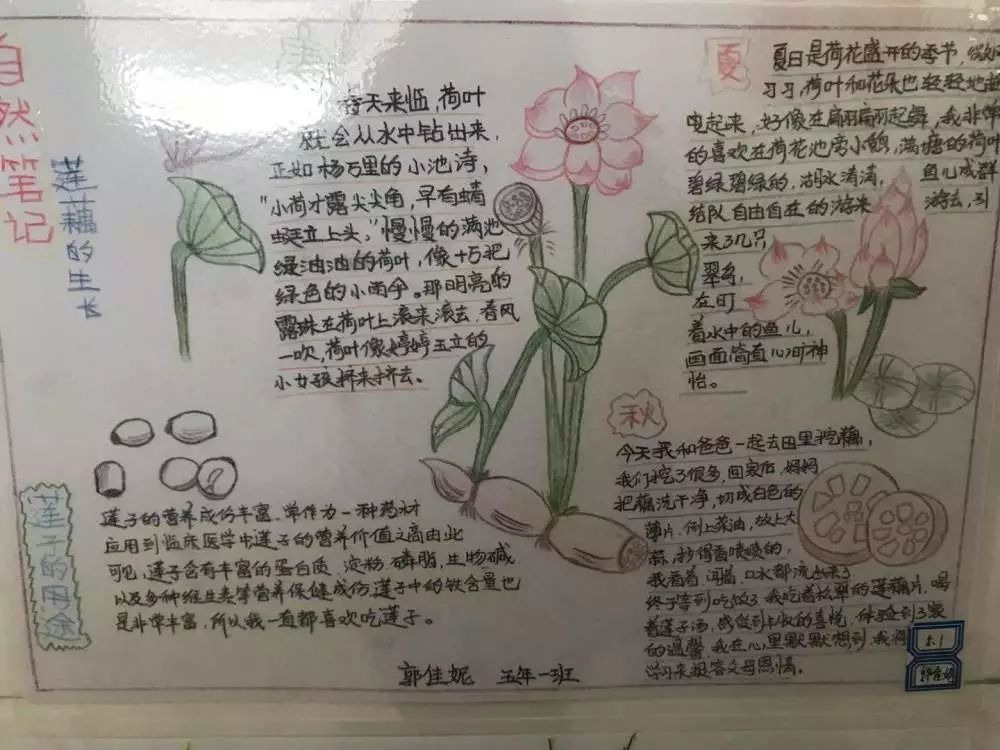 自然笔记
莲藕的生长
春天来临,荷叶
就会从水中钻出来,
正如杨万里的小池诗,
"小荷才露尖尖角,早有蜻
蜓立上头,"慢慢的满池
绿油油的荷叶,像十万把
绿色的小雨伞。那明亮的
露珠在荷叶上滚来滚去,春风
一吹,荷叶像婷婷玉立的
小女孩挤来挤去。
夏
夏日是荷花盛开的季节,微风
习习,荷叶和花朵也轻轻地
起来,好像在翩翩起舞,我非常
的喜欢在荷花池旁小憩,满塘的荷叶
碧绿碧绿的,湖水清满,鱼儿成群
结队自由自在的游来游去,引
来了几只
翠鸟,
在盯
着水中的鱼儿,
画面简直心旷神
怡。
秋
今天我和爸爸一起去田里挖藕,
我们挖了很多,回家后,妈妈
把藕洗干净,切成白色的
薄片,倒上菜油,放上大
蒜,炒得香喷喷的,
我看着,闻着,口水都流出来了
终于等到吃饭了我吃着松翠的莲藕片,喝
着莲子汤,感觉到丰收的喜悦,体验到了家
的温馨,我在心里默默想到,我得
学习来报答父母恩情。
莲子的用途
莲子的营养成份丰富,常作为一种药材
应用到临床医学中莲子的营养价值之高由此
可见,莲子含有丰富的蛋白质,淀粉,磷脂,生物碱
以及多种维生类等营养保健成份,莲子中的铁含量也
是非常丰富,所以我一直都喜欢吃莲子。
郭佳妮 五年一班
5.1
郭佳妮